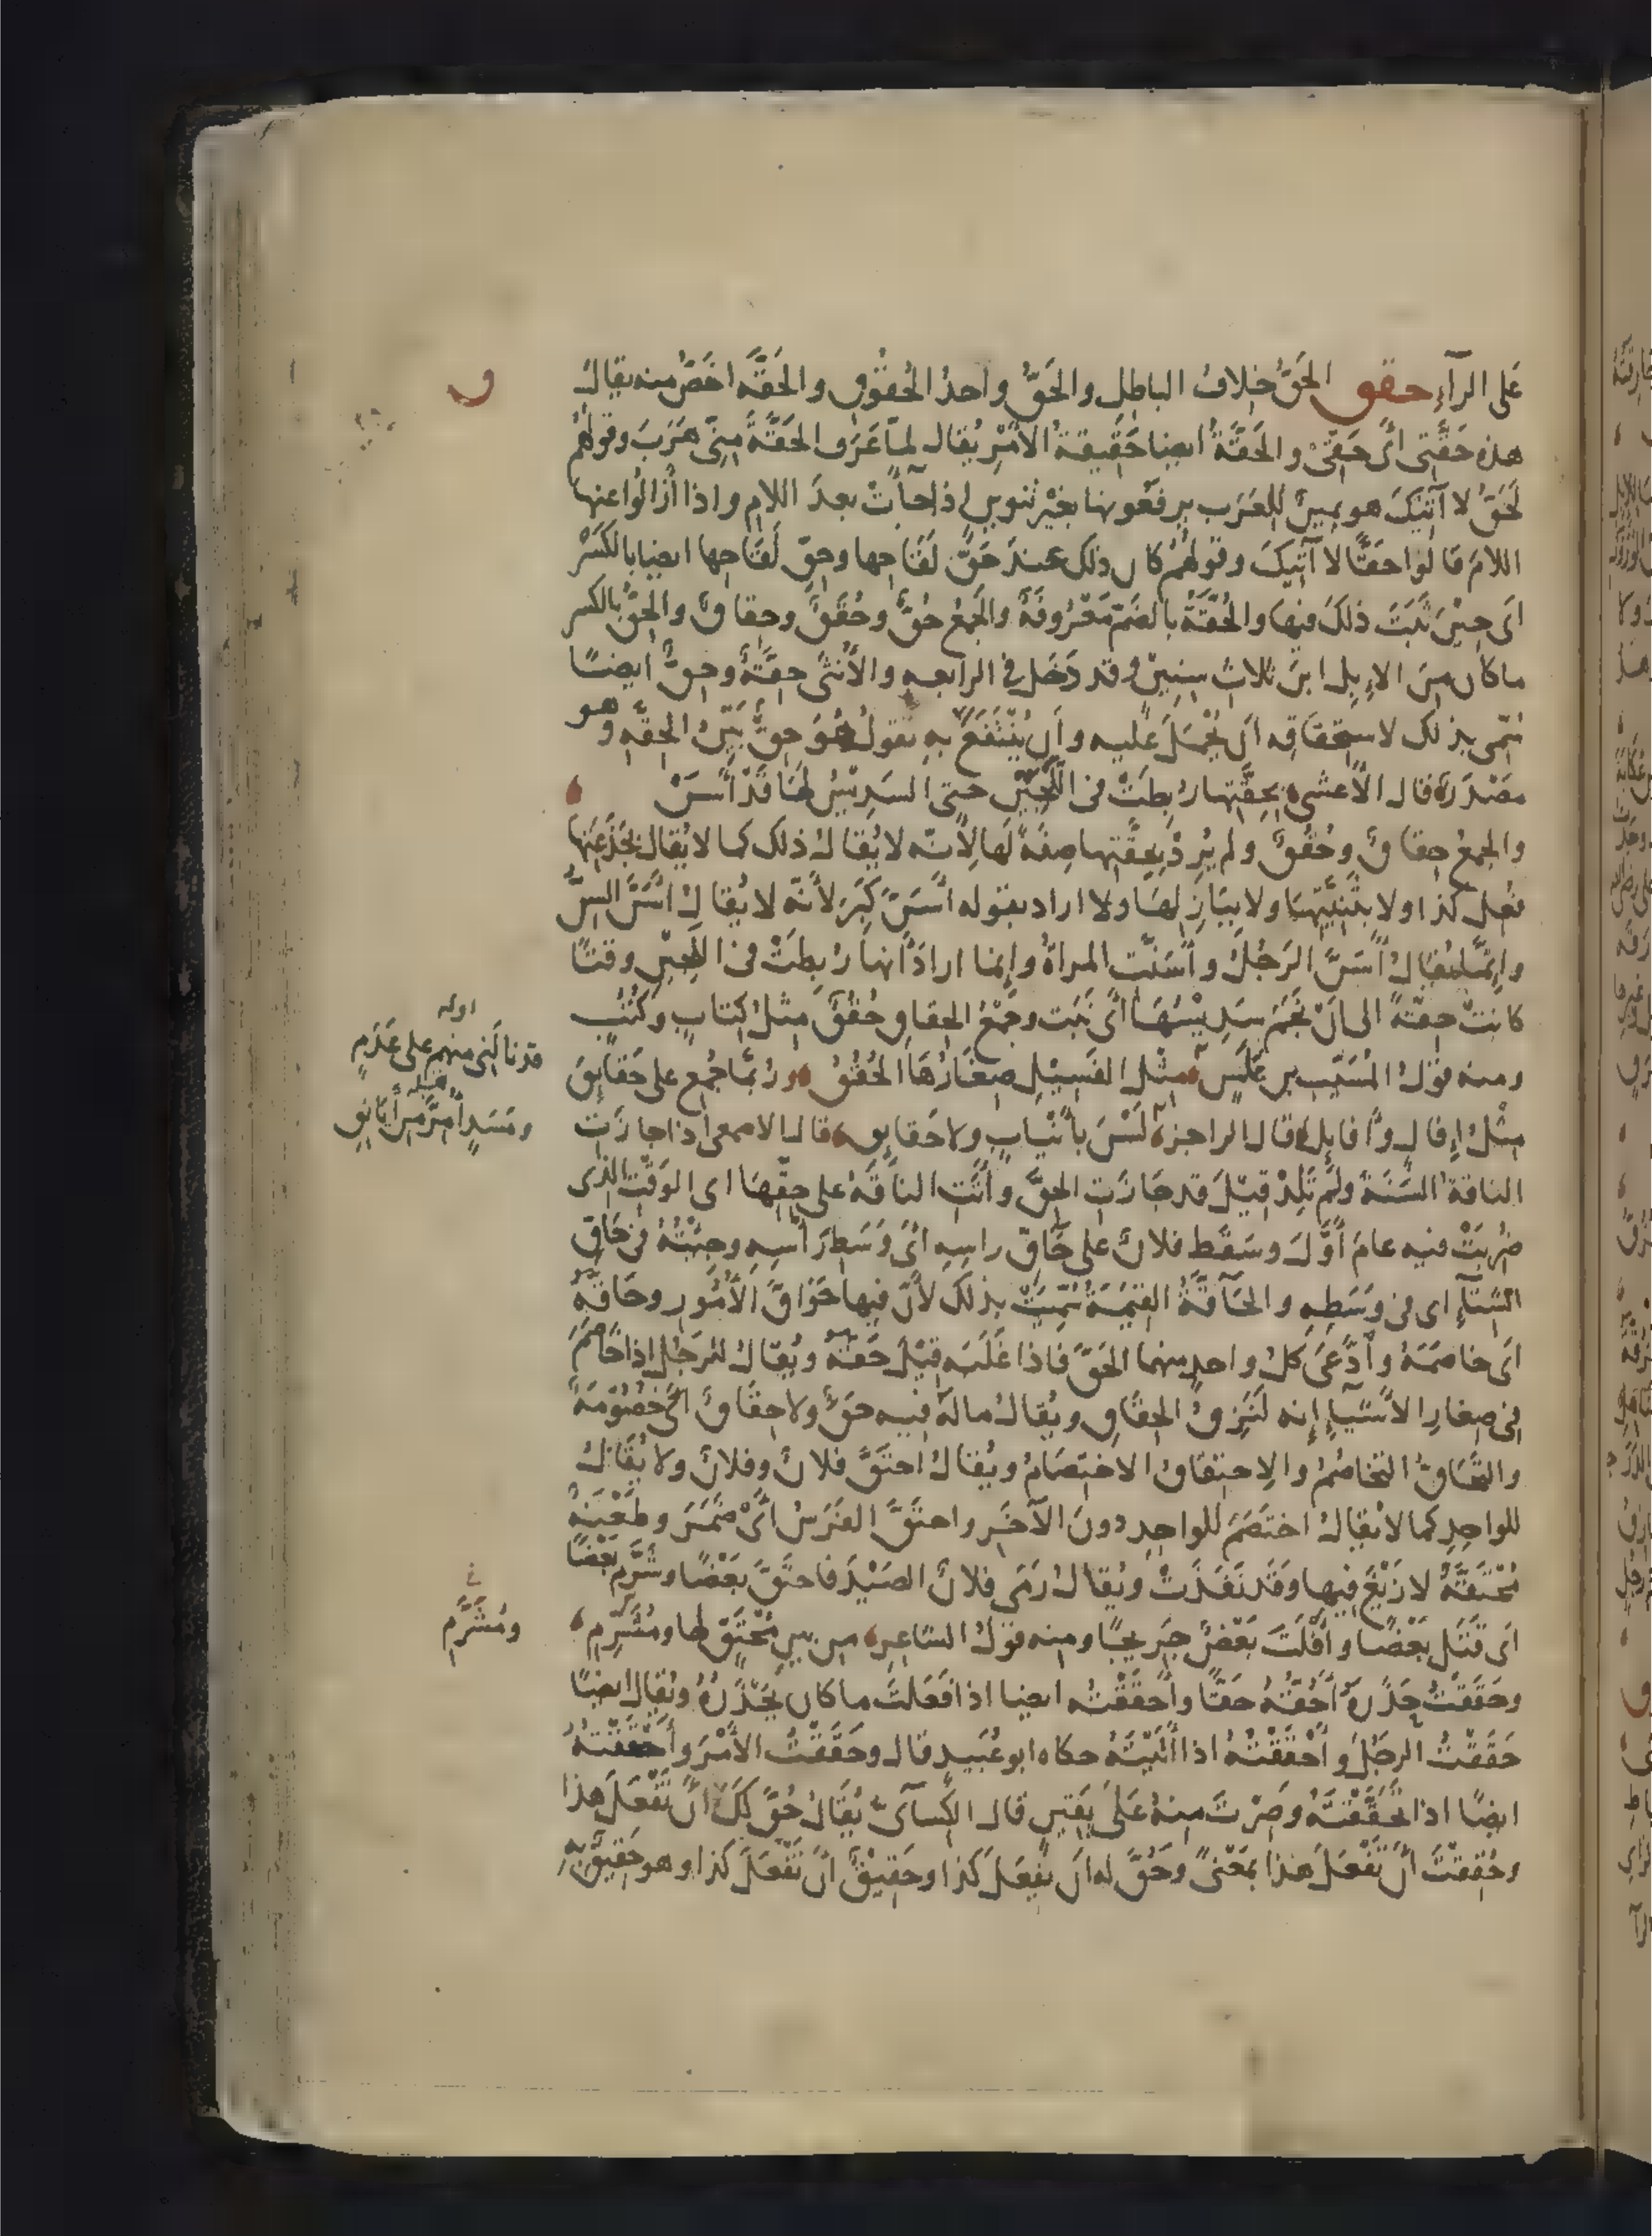 على الرآءِ حقق الحَقُّ خِلافُ الباطِلِ والحَقُّ واحدُ الحُقُوقِ والحَقَّه اخَصُّ منه يقالُ
هذه حَقَّتِى اَىْ حَقِّىْ والحَقَّةُ ايضا حَقِيقةُ الاَمْرِ يُقال لمّا عَرَف الحَقَّةَ مِنِّى هَرَبَ وقولهُم
لَحَقُّ لا آتِيكَ هو يمينٌ للعَرَب يرفَعُونها بغيْر تنوينٍ اذا جآءَتْ بعدَ اللامِ واذا أزالُوا عنها
اللامَ قالُوا حَقًّا لا آتِيكَ وقولهُمْ كان ذلك عندَ حَقِّ لَقَاحِها وحِقِّ لَقَاحِها ايضا بالكَسْر
اَى حِيْنَ ثَبَتَ ذلكَ فيها والحُقَّةُ بالضَمّ مَعْرُوفَةٌ والجَمعُ حُقٌّ وحُقَقٌ وحِقاقٌ والحِقُّ بالكسر
ماكان مِنَ الاِبِلِ ابنَ ثلاثِ سِنِينَ وقد دَخَل فى الرابعه والاُنثَى حِقَّةٌ وحِقٌّ ايضًا
سُمّى بذلك لاستِحْقاقِه اَن يُحْمَلَ عليه واَن يُنْتَفَعَ بهِ تقولُ هُوَ حِقٌّ بَيّنُ الحِقَّهِ وهو
مَصْدَرٌ قال الاَعشى بحِقَّتِها رُبِطَتْ فى اللَّجِيْنِ حتى السَدِيْسُ لهَا قَدْ اَسَنّْ
والجمعُ حِقاقٌ وحُقُقٌ ولم يُرِدْ بحِقَّتِها صِفَةً لَها لِاَنّه لا يُقالُ ذلك كما لا يُقالُ بجَذَعَتِها
فُعِل كذا ولا بثَنِيَّتِها ولا ببَازِلِها ولا اراد بقوله اَسَنَّ كَبِرَ لاَنّه لا يُقالُ اَسَنَّ السِنُّ
واِنَّما يُقالُ اَسَنَّ الرَجُلُ واَسَنَّتِ المراةُ وإنما ارادَ اَنها رُبِطَتْ فى اللَجِيْنِ وقتًا
كانتْ حِقّةً الى اَنْ نَجَمَ سَدِيْسُهَا اَىْ نَبَت وجَمْعُ الحِقاقِ حُقُقٌ مِثلُ كِتابٍ وكُتُبٍ
ومنه قولُ المُسَيَّبِ بنِ عَلَسٍ مِثْلِ الفَسِيْلِ صِغَارُهَا الحُقُقُ ورُبَّما جُمِعَ على حَقايِقَ
مِثْلُ اِفالٍ واَفايِلَ قال الراجز لَسْنَ بأَنْيابٍ ولا حَقايِقِ قال الاصمعى اذا جازَتِ
الناقةُ السَنَةَ ولَمْ تَلِدْ قِيْلَ قد جازَتِ الحِقَّ واَتَتِ الناقَةُ على حِقِّهَا اى الوَقْتِ الذى
ضُرِبَتْ فيه عامَ أَوّلَ وسَقَطَ فلانٌ على حَاقِّ راسِهِ اَىْ وَسَطِ رَأسِه وجِئْتُهُ فى حَاقِّ
الشِتآءِ اى فى وَسَطِهِ والحَآقَّةُ القِيٰمَةُ سُمِّيَتْ بذلك لاَنّ فيها حَوَاقَّ الاُمُورِ وحَاقَّهُ
اَى خاصَمَهُ وادَّعَى كُلُّ واحدٍ منهما الحَقَّ فاذا غَلَبَه قِيْلَ حَقَّهُ ويُقالُ للرَجُلِ اذا خَاصَمَ
فى صِغارِ الاَشْيآءِ اِنه لَنَزِقُ الحِقَاقِ ويُقالُ مالَهُ فيه حَقٌّ ولا حِقَاقٌ اى خُصُوْمَةٌ
والتَحَاقُّ التخاصُمُ والاِحتِقاقُ الاختِصَامُ ويُقالُ احتَقَّ فلانٌ وفلانٌ ولا يُقَالُ
للواحِدِ كما لا يُقالُ اختَصَمَ للواحِدِ دونَ الآخَرِ واحتَقَّ الفَرَسُ اَىْ ضَمُرَ وطَعْنَةٌ
مُحْتَقَّةٌ لا زَيْغَ فِيها وقَد نَفَذَتْ ويُقالُ رَمَى فلانٌ الصَيْدَ فاحتَقَّ بَعْضًا وشَرَّم بَعْضًا
اَى قَتَل بَعْضًا واَفلَتَ بَعْضٌ جَرِيحًا ومنه قولُ الشاعِرِ من بينِ مُحْتَقٍّ لها ومُشَرِّمِ
وحَقَقْتُ حِذْرَهُ اَحُقُّهُ حَقًّا واَحقَقْتُه ايضا اذا فَعَلْتَ ماكان يَحْذَرُهُ ويُقال ايضًا
حَقَقْتُ الرجُلَ واَحْقَقْتُهُ اذا اَتَيْتَهُ حكاه ابو عُبَيد قال وحَقَقْتُ الاَمْرَ واَحْقَقْتُهُ
ايضًا اذا تَحَقَّقْتَهُ وصِرْتَ منهُ عَلَى يَقِينٍ قال الكِسآىُّ يُقالُ حُقَّ لَكَ اَنْ تَفْعَلَ هذا
وحُقِقْتَ اَنْ تَفْعَلَ هذا بمَعْنًى وحُقَّ له اَن يَفعَلَ كَذا وحَقِيْقٌ اَن تَفْعَلَ كذا وهو حَقِيقٌ بهِ
ق
اوله
قد نالَنى منهم على عَدَمٍ
قبله
ومَسَدٍ أُمِرَّ مِن أَيانِقِ
ومُشَرَّمِ